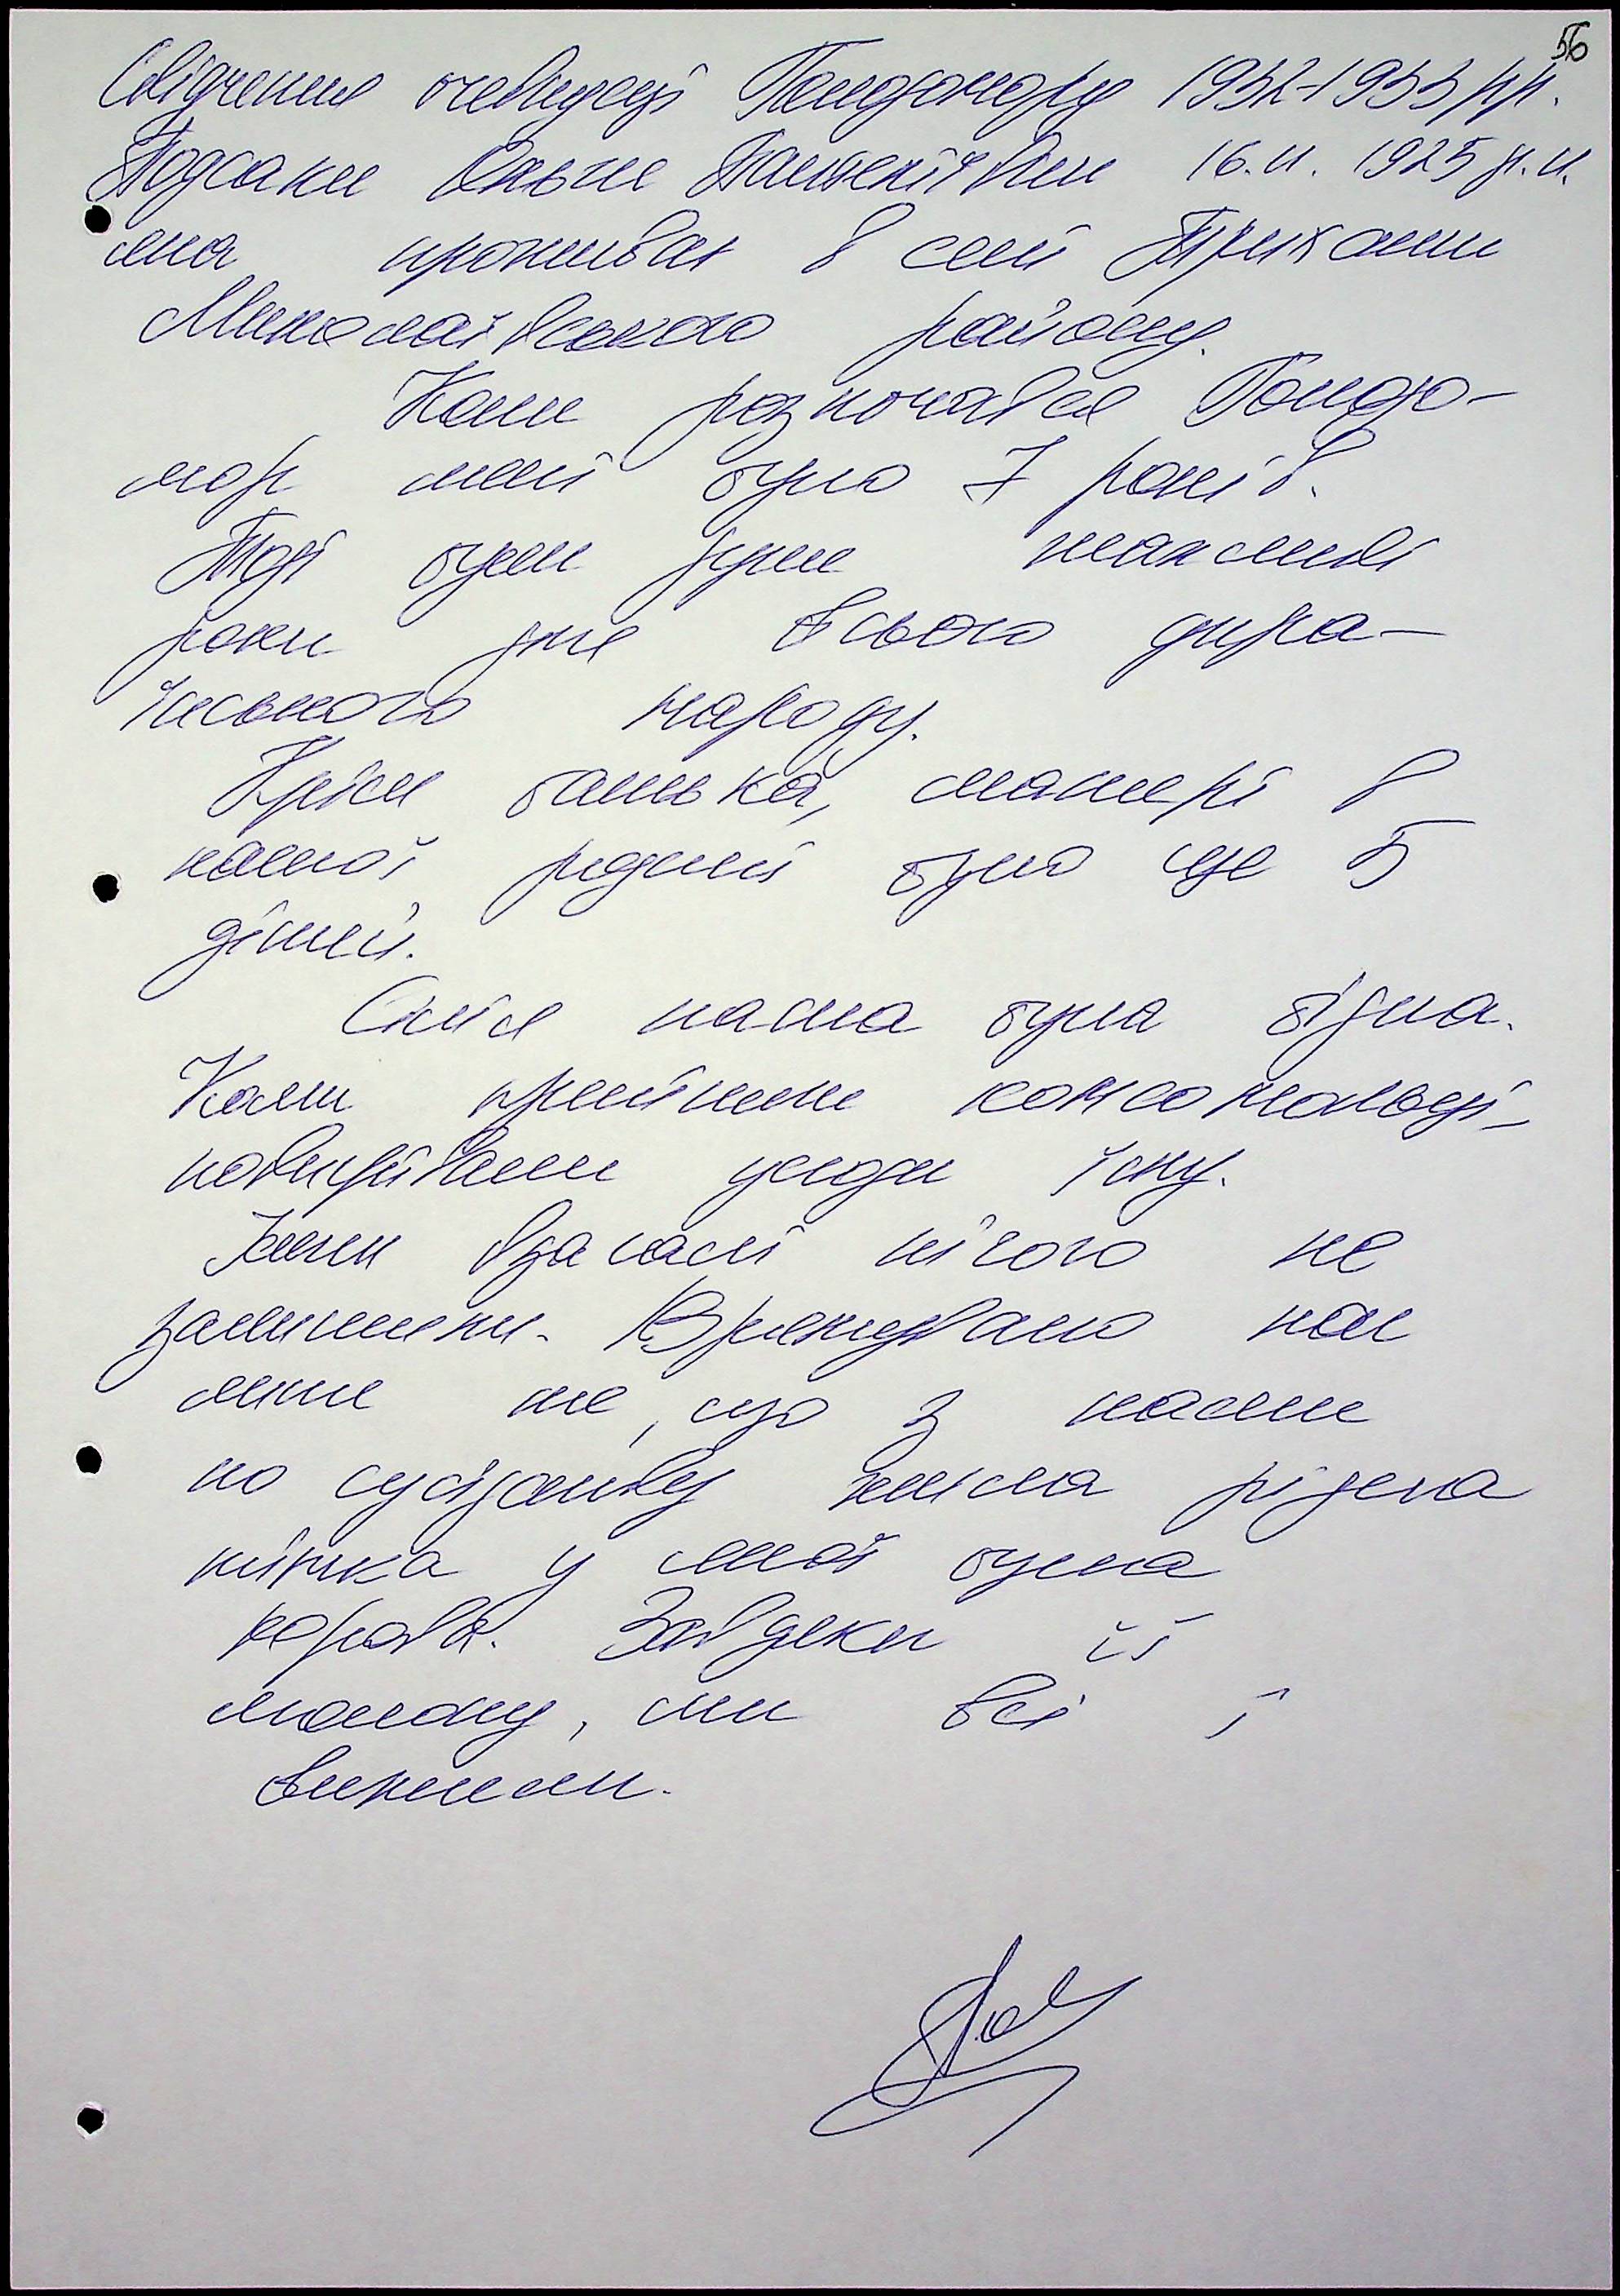 56
Свідчення очевидця Голодомору 1932-1933 рр.
16.II. 1925 р.н.
яка проживає в селі Трихати
Миколаївського району.
Коли розпочався Голодо-
мор мені було 7 років.
Тоді були дуже жахливі
роки для всього укра-
їнського народу.
Крім батька, матері в
нашої родині було ще 5
дітей.
Сім'я наша була бідна.
Коли прийшли комсомольці
повигрібали усюди їжу.
Їжи взагалі нічого не
залишили. Врятувало нас
лише те, що з нами
по сусідству жила рідна
тітка у якої була
корова. Завдяки її
молоку, ми всі і
вижили.